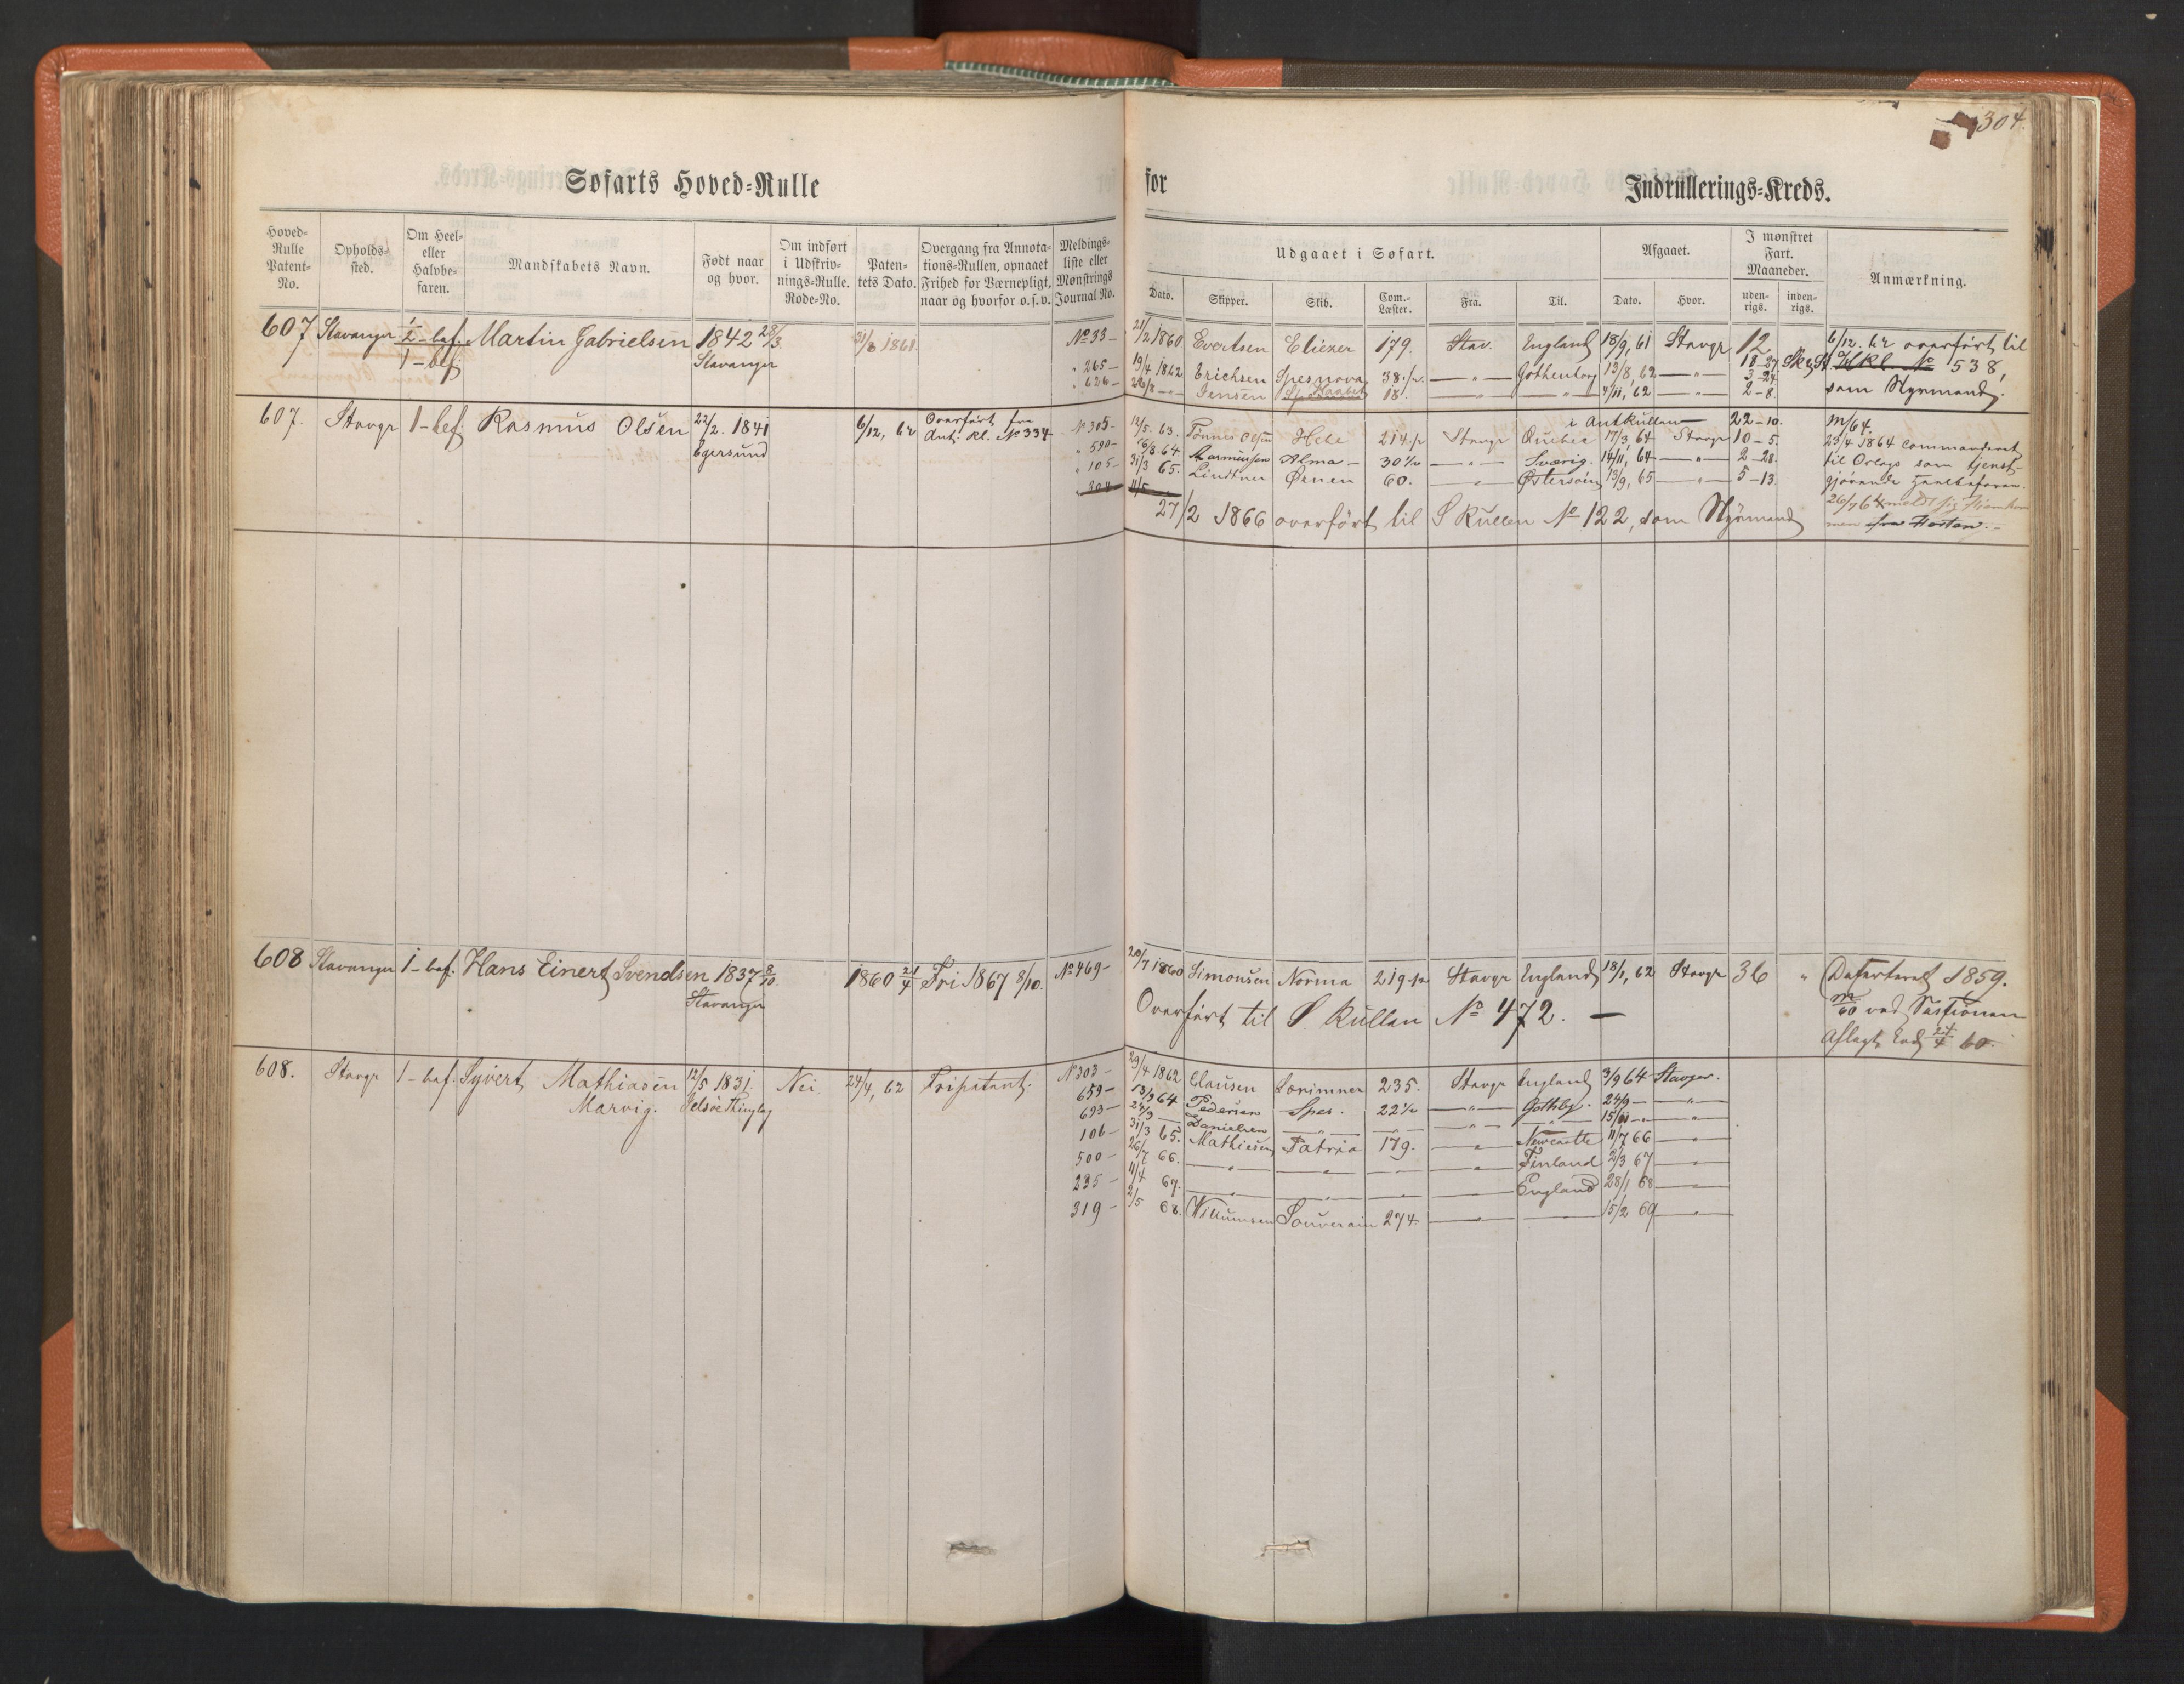 304.
Søfarts Hoved-Rulle
for
Indrullerings-Kreds.
Hoved-Rulle Patent-No.
Opholds-sted.
Om Heel- eller Halvbe-faren.
Mandskabets Navn.
Født naar og hvor.
Om indført i Udskriv-nings-Rulle. Rode-No.
Paten-tets Dato.
Overgang fra Annota-tions-Rullen, opnaaet Frihed for Værnepligt, naar og hvorfor o.s.v.
Meldings-liste eller Mønstrings Journal No.
Udgaaet i Søfart.
Dato. Skipper. Skib. Com.-Læster. Fra. Til.
Afgaaet.
Dato. Hvor.
I mønstret Fart. Maaneder.
uden-rigs. inden-rigs.
Anmærkning.
607 Stavanger ½-bef. Martin Gabrielsen 1842 28/3 31/8 1861 No 33- 21/2 1860 Evertsen Eliezer 179. Stav. England 18/9, 61 Stavgr 12. 6/12. 62 overført til
1-bef. Stavanger " 265- 19/4 1862 Erichsen Spesnova 38 ½. -"- Gothenborg 13/8, 62 -"- 18-27 538,
" 626- 26/8 -"- Jensen 18 -"- -"- 4/11, 62 -"- 2-8. som Styrmand.
607. Stavgr 1-bef. Rasmus Olsen 22/2. 1841 6/12, 62 Overført fra N 305- 12/5. 63. Tønnes Olsen Hebe 214 ½ Stavgr Quebec 17/3, 64 Stavgr 22-10. m/64.
Egersund Ant. Rl. No 334 " 590- 16/8. 64. Alma- 30 ½ -"- Sværig. 14/11, 64 -"- 10-5. 23/4 1864 commanderet
" 105- 31/3 65. Lindtner Ørnen 60. -"- Østersøin 13/9, 65 -"- 2-28. til Orlogs som tjenst-
i Antrullen 5-13 gjørende
27/2 1866 overført til S Rullen No 122, som Styrmand
608 Stavanger 1-bef. Hans Einert Svendsen 1837 8/10. 1860 24/4 Fri 1867 8/10. No 469- 20/7 1860 Simonsen Norma 219 ½ Stavgr England 18/1, 62 Stavgr 36 " Deserteret 1859.
Stavanger Overført til S. Rullen No 472. -
Aflagt Eed 24/4 60.
608. Stavgr 1-bef. Syvert Mathiasen 12/5 1831. Nei. 24/4, 62 Fripatent. No 303- 29/4 1862 Clausen Lorimner 235. Stavgr England 3/9 64 Stavger.
Marvig. Jelsøe Thinglag 659- 13/9 64 Pedersen Spes. 22 ½ -"- Gothbg. 24/9- -"-
693- 24/9- Danielsen -"- -"- -"- -"- 15/11-"- -"-
106- 31/3 65. Mathiesen Patria 179. -"- Newcastle 11/7 66 -"-
500- 26/7 66. -"- -"- -"- -"- Finland 2/3 67 -"-
235- 11/4 67. -"- -"- -"- -"- England 28/1 68 -"-
319- 2/5 68. Willumsen Souverain 274. -"- -"- 15/2 69 -"-